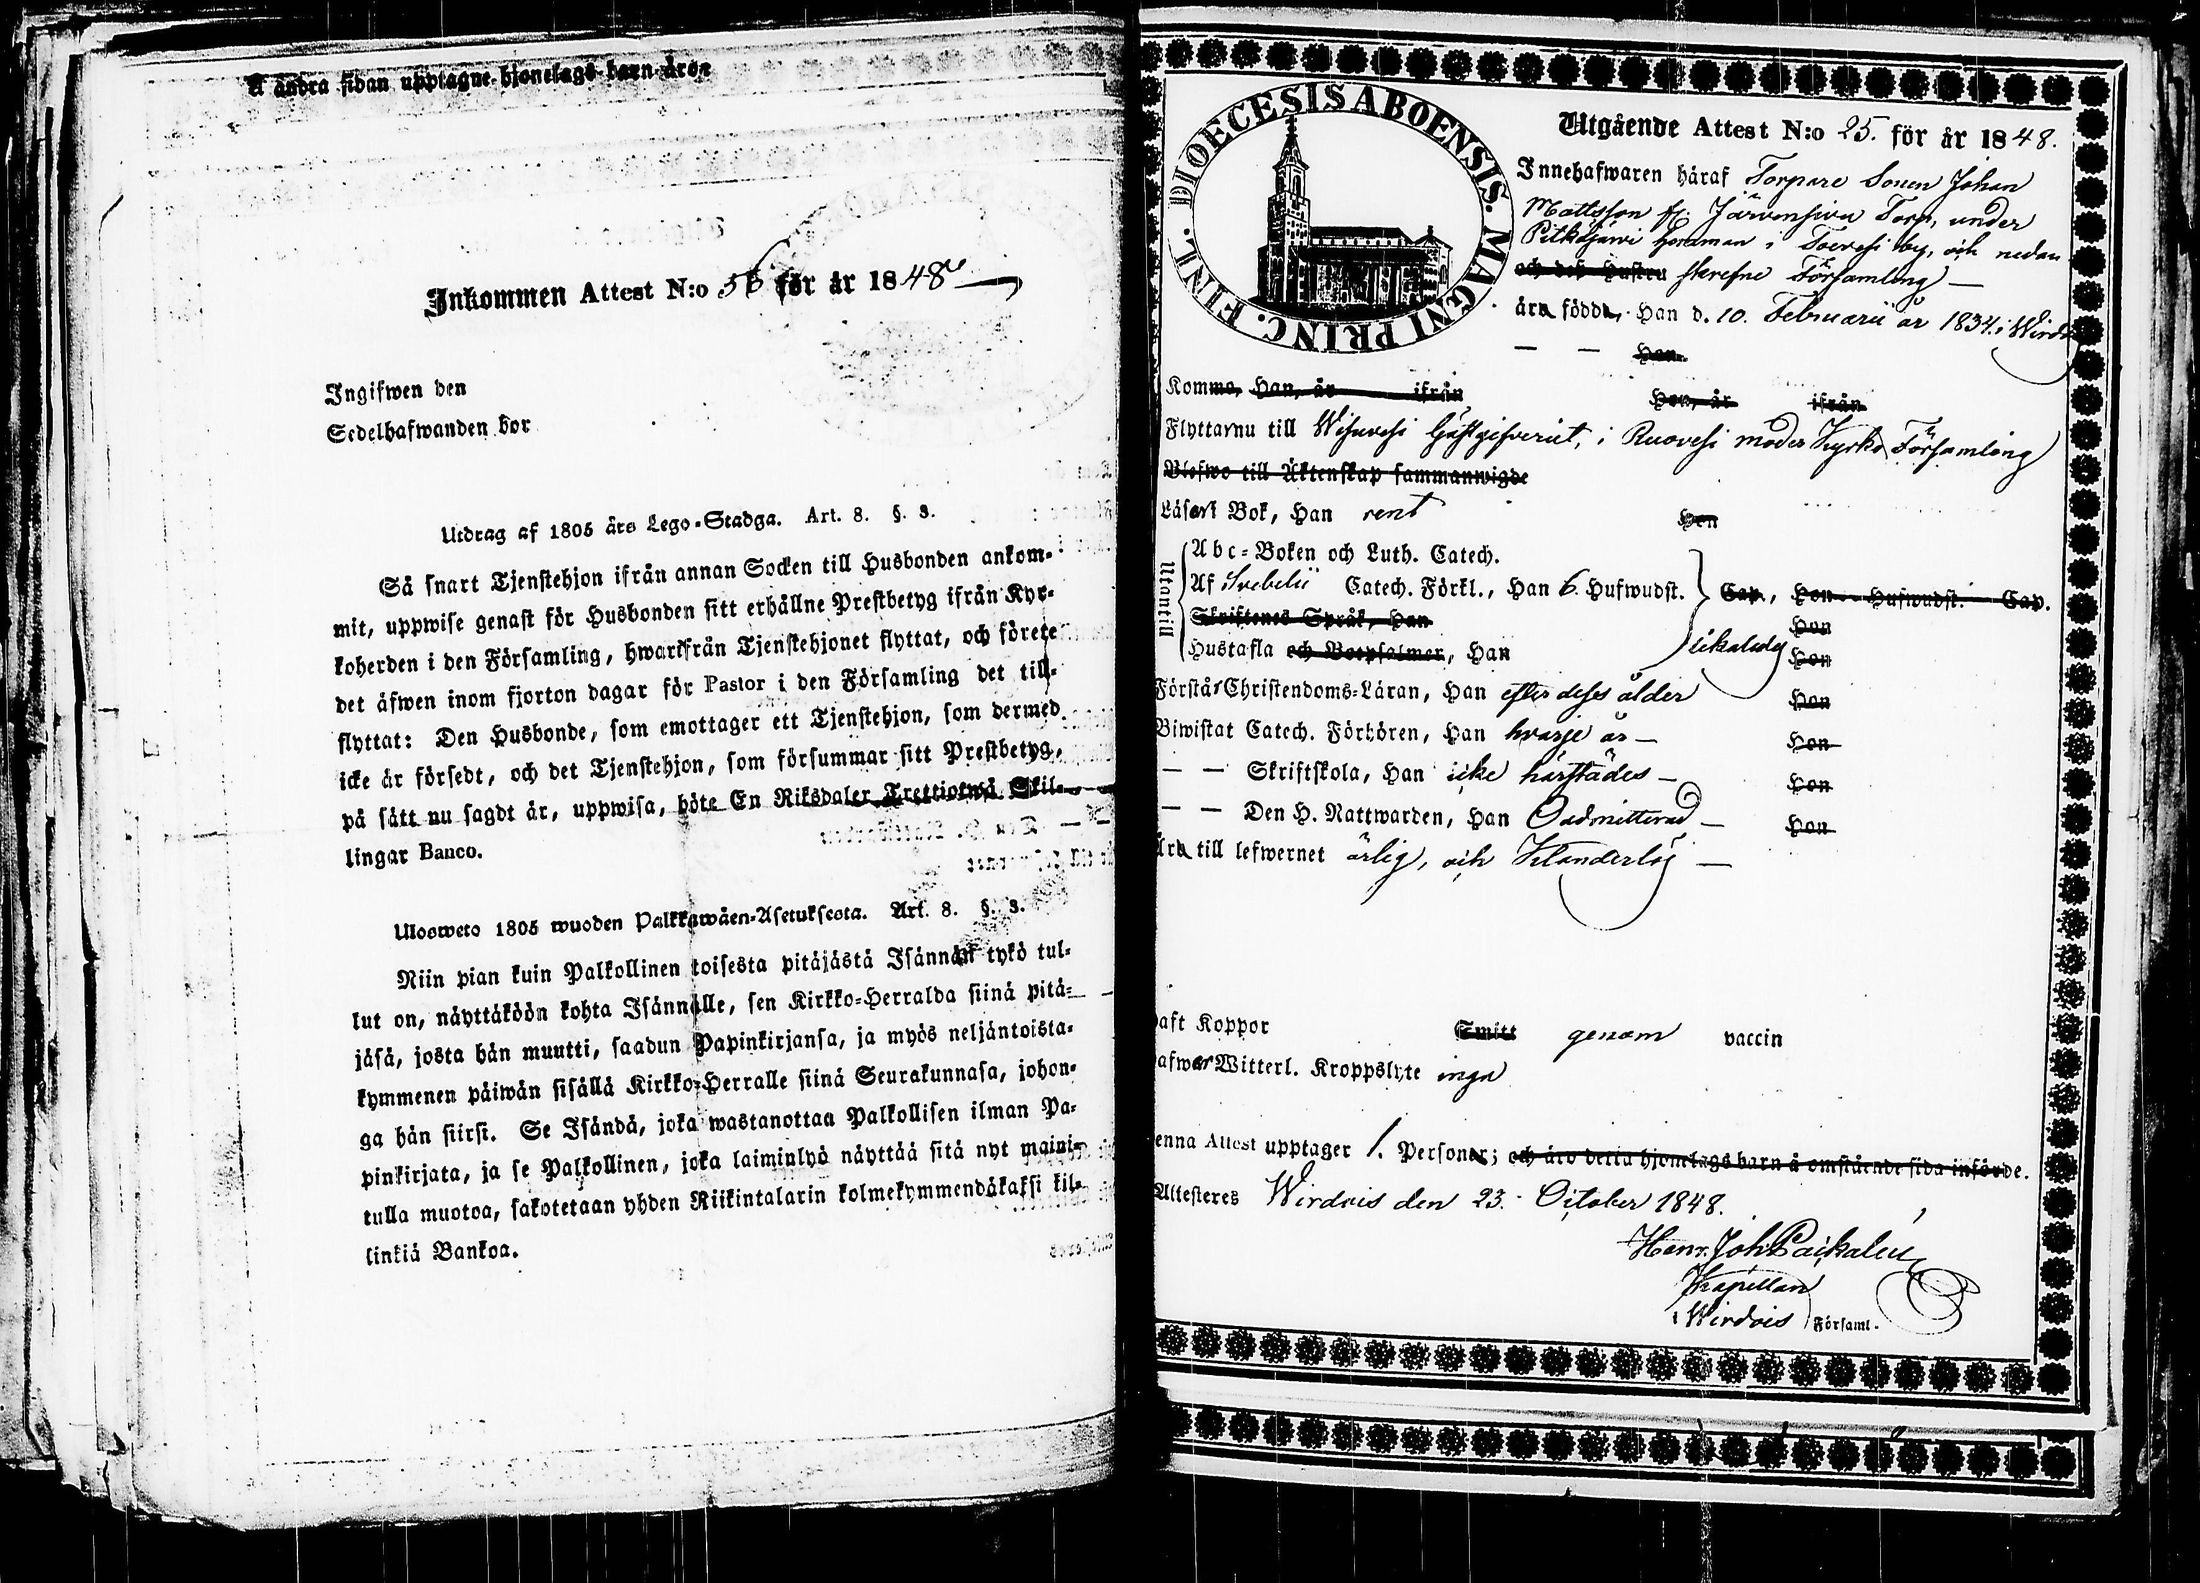 å andra sidan upptagne hjonelags barn äro:
Inkommen Attest N:o 56 för år 1848
Ingifwen den
Sedelhafwanden bor
Utdrag af 1805 års Lego-Stadga. Art. 8. §. 3.
Så snart Tjenstehjon ifrån annan Socken till Husbonden ankom-
mit, uppwise genast för Husbonden sitt erhållne Prestbetyg ifrån Kyr-
koherden i den Församling, hwarifrån Tjenstehjonet flyttat, och förete
det äfwen inom fjorton dagar för Pastor i den Församling det till-
flyttat: Den Husbonde, som emottager ett Tjenstehjon, som dermed
icke är försedt, och det Tjenstehjon, som försummar sitt Prestbetyg,
på sätt nu sagdt är, uppwisa, böte En Riksdaler Trettiotwå Skil-
lingar Banco.
Ulosweto 1805 wuoden Palkkawäen-Asetuksesta. Art. 8. §. 3.
Niin pian kuin Palkollinen toisesta pitäjästä Isännän tykö tul-
lut on, näyttäköön kohta Isännälle, sen Kirkko-Herralda siinä pitä-
jäsä, josta hän muutti, saadun Papinkirjansa, ja myös neljäntoista-
kymmenen päiwän sisällä Kirkko-Herralle siinä Seurakunnasa, johon-
ga hän siirsi. Se Isändä, joka wastanottaa Palkollisen ilman Pa-
pinkirjata, ja se Palkollinen, joka laiminlyö näyttää sitä nyt maini-
tulla muotoa, sakotetaan yhden Riikintalarin kolmekymmendäkaksi kil-
linkiä Bankoa.
DIOECESIS ABOENSIS. MAGNI PRINC. FINL.
Utgående Attest N:o 25. för år 1848.
Innehafwaren häraf Torpare Sonen Johan
Mattsson fr. Järvensivu Torp, under
Pitkäjärvi hemman i Toivesi by, och nedan
och dess Hustru skrefne Församling
äro födde, Han d. 10. Februarii år 1834. i Wirdois
Hon
Komne, Han, år ifrån Hon, år ifrån
Flyttar nu till Wisuvesi Gästgifveriet, i Ruovesi moder Kyrko Församling
Blefwo till Äktenskap sammanwigde
Läser i Bok, Han rent Hon
Utantill
Abc-Boken och Luth. Catech.
Af Svebelii Catech. Förkl., Han 6. Hufwudst. Cap., Hon Hufwudst. Cap.
Skriftenes Språk, Han Hon
Hustafla och Botpsalmer, Han likaledes Hon
Förstår Christendoms-Läran, Han efter dess ålder Hon
Biwistat Catech. Förhören, Han hvarje år Hon
Skriftskola, Han icke härstädes Hon
Den H. Nattwarden, Han Oadmitterad Hon
Äro till lefwernet ärlig, och Klanderlös
Haft Koppor Smitt genom vaccin
Hafwer Witterl. Kroppslyte inga
Denna Attest upptager 1. Personer; och äro detta hjonelags barn å omstående sida införde.
Attesteres Wirdois den 23. October 1848.
Henr. Joh. Paikalén
Kapellan
i Wirdois Församl.